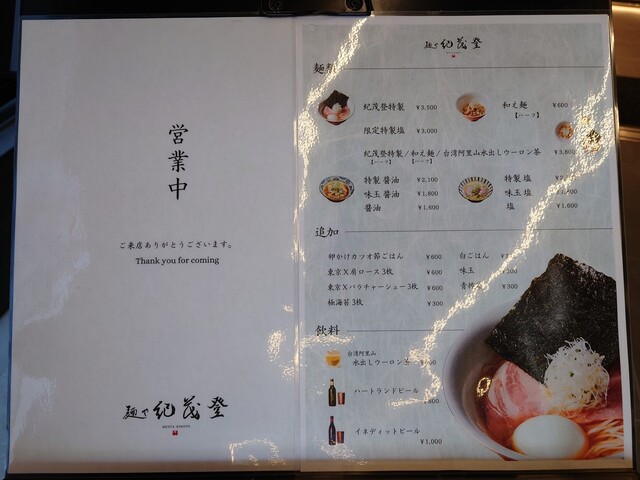 営業中
ご来店ありがとうございます。
Thank you for coming
麺や 紀茂登
MENYA KIMOTO
麺や 紀茂登
麺類
紀茂登特製 ¥3,500
和え麺 ¥600
【ハーフ】
限定特製塩 ¥3,000
紀茂登特製/和え麺/台湾阿里山水出しウーロン茶 ¥3,800
【ハーフ】 【ハーフ】
特製 醤油 ¥2,100
味玉 醤油 ¥1,800
醤油 ¥1,600
特製 塩
味玉 塩
塩 ¥1,600
追加
卵かけカツオ節ごはん ¥600
東京X肩ロース3枚 ¥600
東京Xバラチャーシュー3枚 ¥600
極海苔3枚 ¥300
白ごはん
味玉
飲料
台湾阿里山
水出しウーロン茶
ハートランドビール
イネディットビール
¥1,000